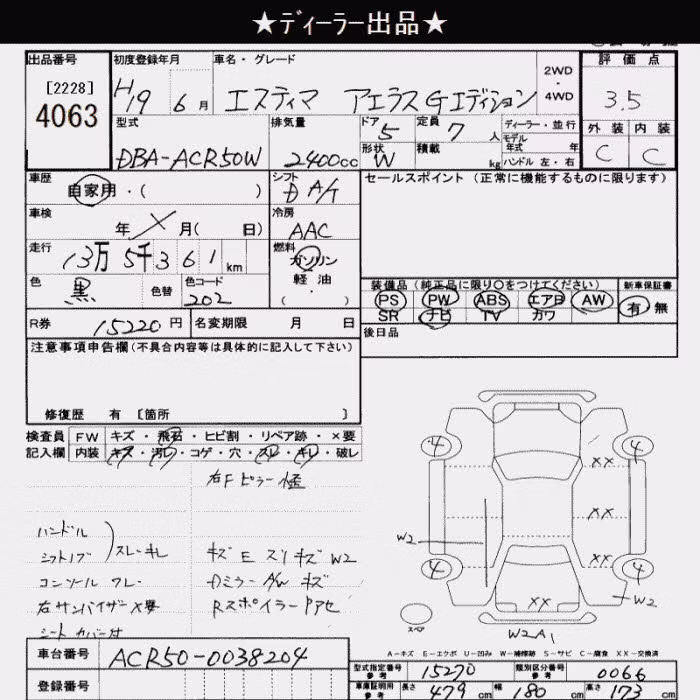 ★ディーラー出品★
出品番号 初度登録年月 車名・グレード 評価点
[2228] 2WD
4063 H19 6月 エスティマ アエラス Gエディション ・ 3.5
4WD
型式 排気量 ドア 定員 ディーラー・並行 外装 内装
5 7人 モデル年式 年
DBA-ACR50W 2400cc 形状 W 積載 kg ハンドル 左・右 C C
車歴 シフト セールスポイント (正常に機能するものに限ります)
自家用・( ) D A/T
車検 冷房
年 月( 日) AAC
走行 燃料
13万5千361km ガソリン
軽油
色 黒 色替 色コード 202 ・( ) 装備品 (純正品に限り○をつけてください) 新車保証書
PS PW ABS エアB AW 有 無
SR ナビ TV カワ
R券 15220円 名変期限 月 日 後日品
注意事項申告欄(不具合内容等は具体的に記入して下さい)
修復歴 有 [箇所 ]
検査員 FW キズ・飛石・ヒビ割・リペア跡・×要
記入欄 内装 キズ・汚レ・コゲ・穴・スレ・キレ・破レ
右Fピラー
ハンドル
シフトノブ スレ キレ キズ E スリキズ W2
コンソール ワレ Dミラー A/W キズ
右サンバイザー×要 Rスポイラー Pアセ
シートカバー付
4 4
XX
XX
W2
XX
4 4
XX W2
スペア
W2A1
A-キズ E-エクボ U-凹み W-補修跡 S-サビ C-腐食 XX-交換済
車台番号 ACR50-0038204
型式指定番号 参考 15270 類別区分番号 参考 0066
登録番号
車庫証明用 参考 長さ 479 cm 幅 180 cm 高さ 173 cm